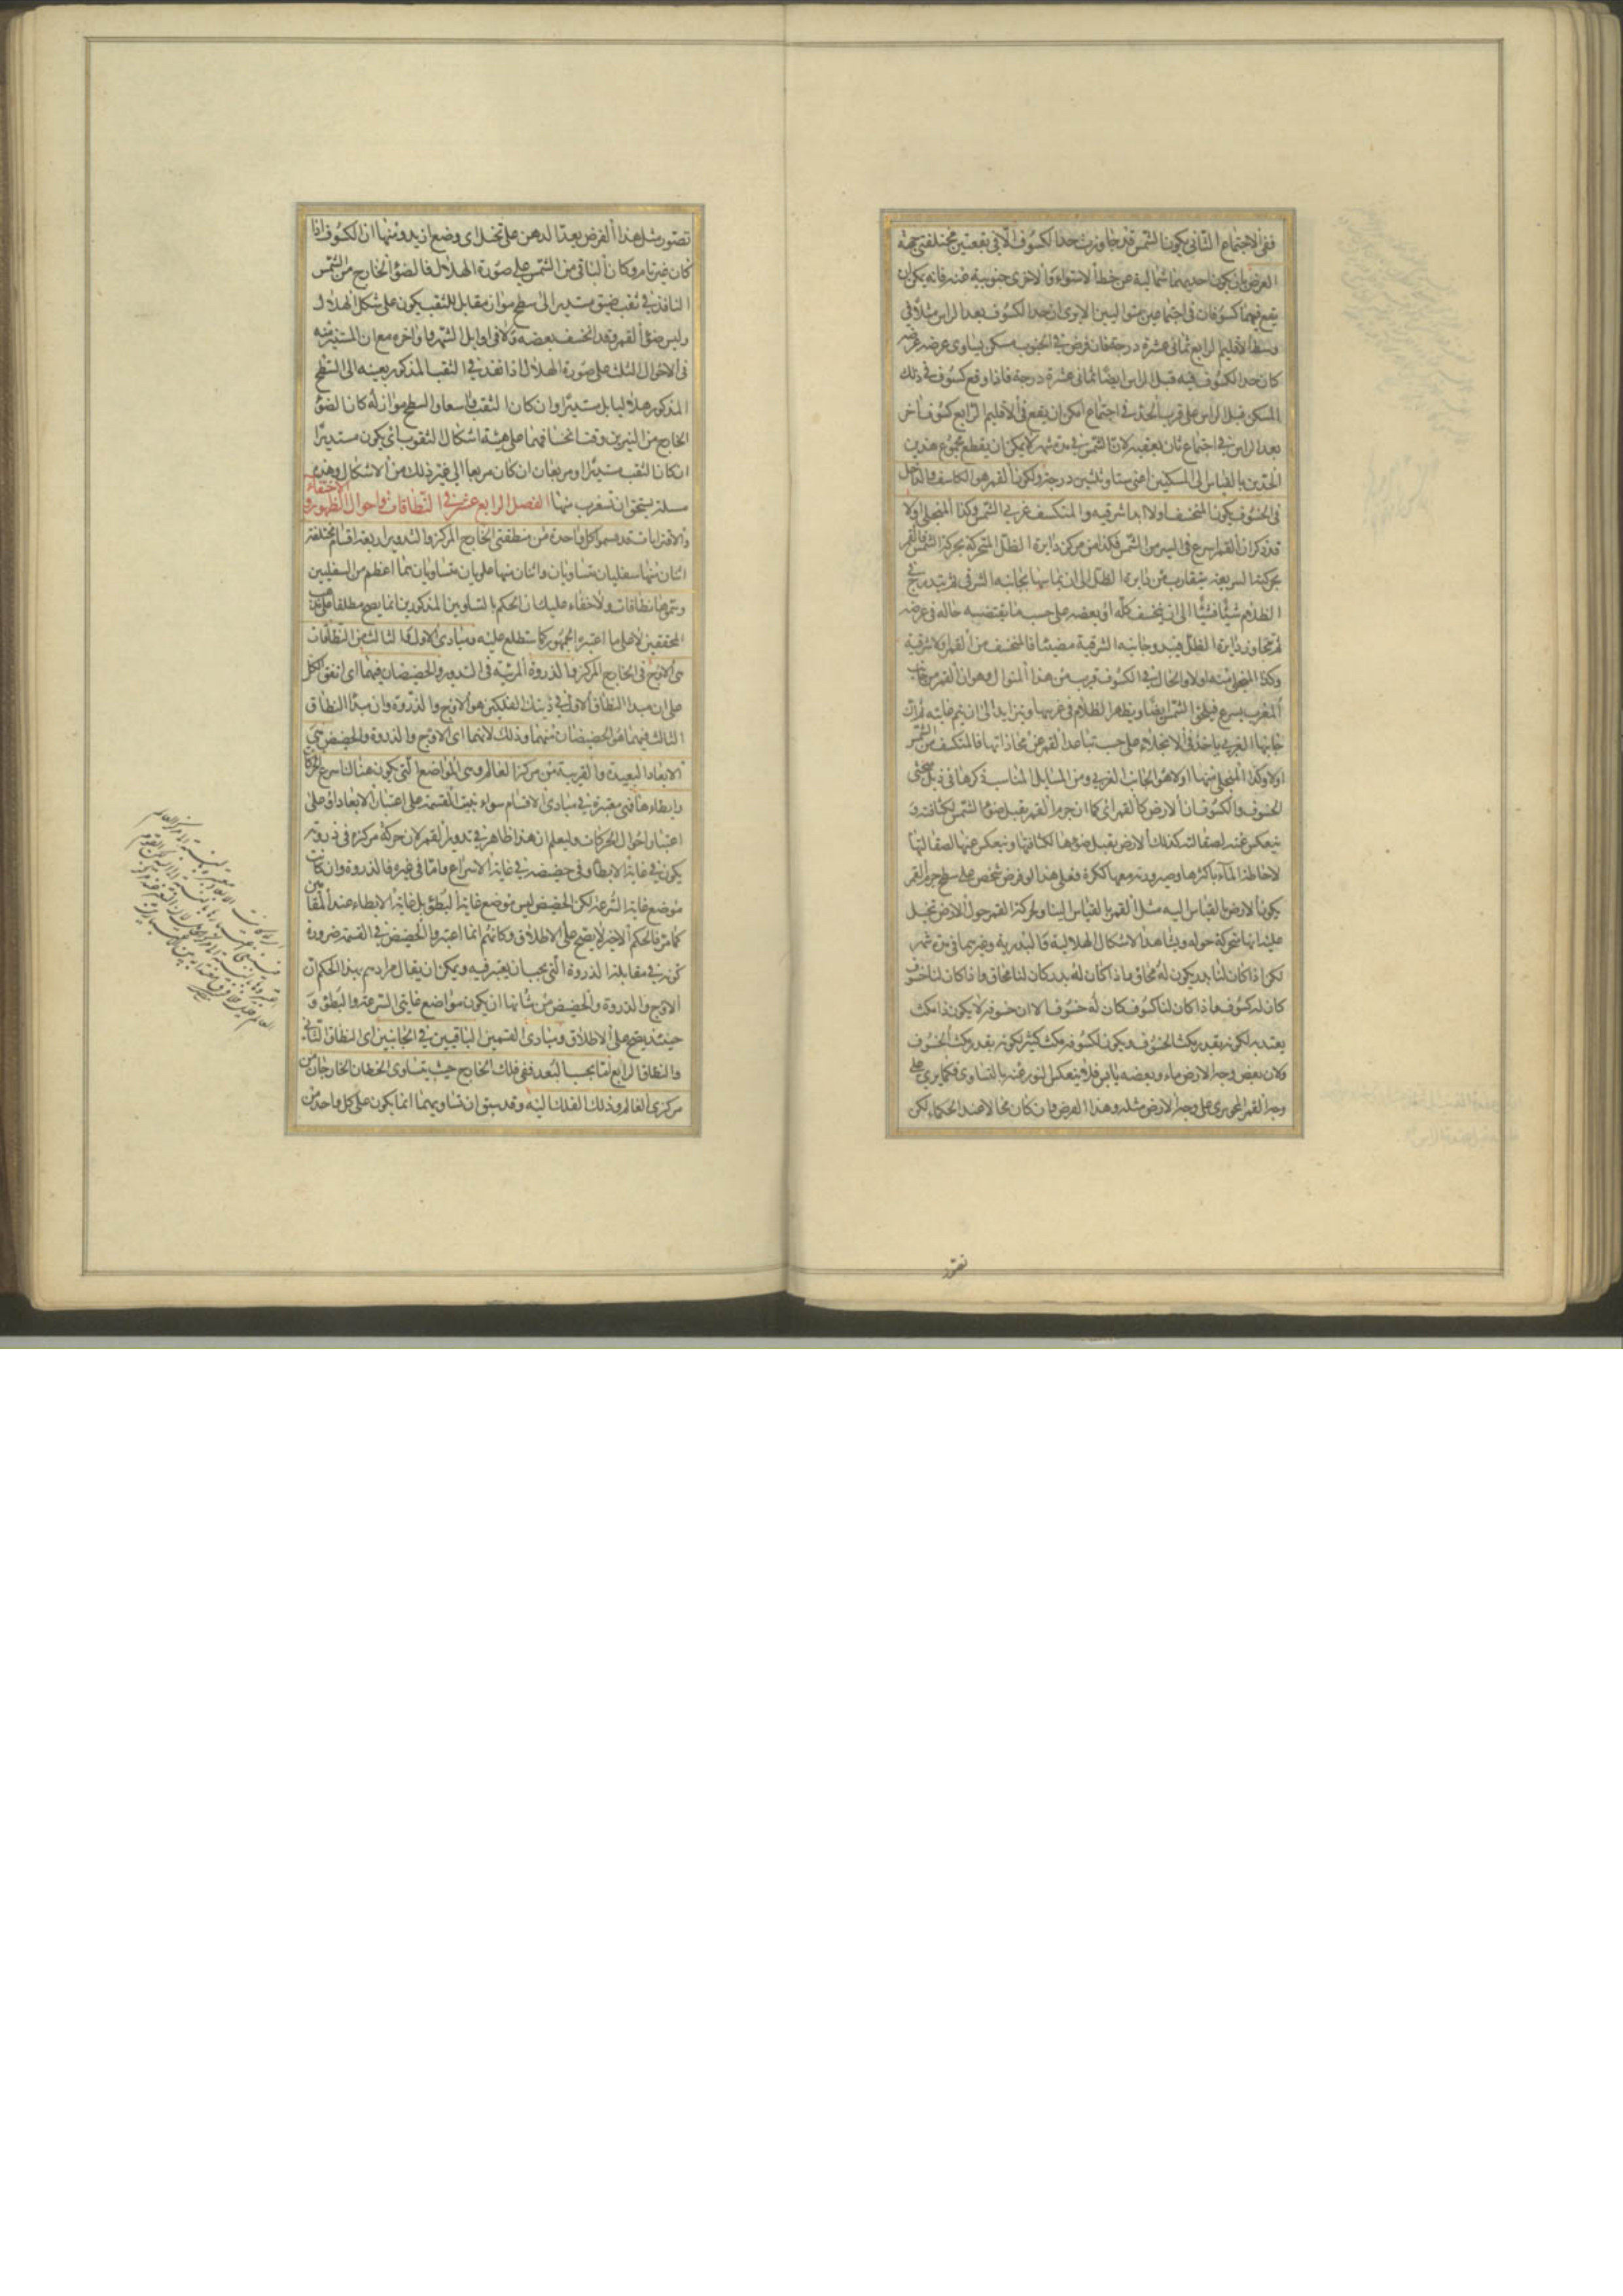 ففى الاجتماع الثانى يكون الشمس قد جاوزت حد الكسوف الا فى بقعتين مختلفتى جهة
العرض بان يكون احديهما شمالية عن خط الاستواء والاخرى جنوبية عنه فانه يمكن ان
يقع فيهما كسوفان فى اجتماعين متواليين الا يرى ان حد الكسوف بعد الراس مثلا فى
وسط الاقليم الرابع ثمانى عشرة درجة فان فرض فى الجنوب مسكن يساوى عرضه عرضه
كان حد الكسوف فيه قبل الراس ايضا ثمانى عشرة درجة فاذا وقع كسوف فى ذلك
المسكن قبل الراس على قرب الحد فى اجتماع امكن ان يقع فى الاقليم الرابع كسوف اخر
بعد الراس فى اجتماع ثان يعقبه لان الشمس فى مدة شهر لا يمكن ان يقطع مجموع هذين
الحدين بالقياس الى المسكنين اعنى ستا وثلثين درجة ولكون القمر هو الكاسف والداخل
فى الخسوف يكون المنخسف اولا ابدا شرقيه والمنكسف غربى الشمس وكذا المنجلى اولا
قد ذكر ان القمر اسرع فى السير من الشمس فكذا من مركز دايرة الظل المتحركة بحركة الشمس فالقمر
بحركته السريعة يتقارب من دايرة الظل الى ان يماسها بجانبه الشرقى ثم يتدرج فى
الظلام شيئا فشيئا الى ان ينخسف كله او بعضه على حسب ما يقتضيه حاله فى عرضه
ثم يتجاوز دايرة الظل فيبدو جانبه الشرقية مضيئا فالمنخسف من القمر اولا شرقية
وكذا المنجلى منه اولا والحال فى الكسوف قريب من هذا المنوال وهو ان القمر من جانب
المغرب يسرع فيلحق الشمس ايضا ويظهر الظلام فى غربيها ويتزايد الى ان يتم غايته ثم ان
جانبها الغربى ياخذ فى الانجلاء على حسب تباعد القمر عن محاذاتها فالمنكسف من الشمس
اولا وكذا المنجلى منها اولا هو الجانب الغربى ومن المسايل المناسبة ذكرها فى ذيل مبحثى
الخسوف والكسوف ان الارض كالقمر اى كما ان جرم القمر يقبل ضوء الشمس لكثافته و
ينعكس عنه لصقالته كذلك الارض يقبل ضوءها لكثافتها وينعكس عنها لصقالتها
لاحاطة الماء باكثرها وصيرورته معها ككرة فعلى هذا لو فرض شخص على سطح جرم القمر
يكون الارض بالقياس اليه مثل القمر بالقياس الينا ولحركة القمر حول الارض تخيل
عليه انها متحركة حوله ويشاهد الاشكال الهلالية والبدرية وغيرهما فى مدة شهر
لكن اذا كان لنا بدر يكون له محاق واذا كان له بدر كان لنا محاق واذا كان لنا خسوف
كان له كسوف واذا كان لنا كسوف كان له خسوف الا ان خسوفه لا يكون ذا مكث
يعتد به لكونه بقدر مكث الكسوف ويكون لكسوفه مكث كثير لكونه بقدر مكث الخسوف
ولان بعض وجه الارض ماء وبعضه يابس فلا ينعكس النور عنه بالتساوى فكما يرى على
وجه القمر المحو يرى على وجه الارض مثله وهذا الفرض وان كان محالا عند الحكماء لكن
تصور
تصور مثل هذا الفرض يعد الذهن على تخيل اى وضع اريد ومنها ان الكسوف اذا
كان غير تام وكان الباقى من الشمس على صورة الهلال فالضوء الخارج من الشمس
النافذ فى ثقب ضيق مستدير الى سطح مواز مقابل للثقب يكون على شكل الهلال
وليس ضوء القمر وقد انخسف بعضه ولا فى اوايل الشهر واواخره مع ان المستنير منه
فى الاحوال الثلث على صورة الهلال اذا نفذ فى الثقب المذكور بعينه الى السطح
المذكور هلاليا بل مستديرا وان كان الثقب واسعا والسطح موازيا له كان الضوء
الخارج من النيرين وقت انخسافهما على هيئة اشكال الثقوب اى يكون مستديرا
ان كان الثقب مستديرا ومربعا ان كان مربعا الى غير ذلك من الاشكال وهذه
مسئلة يستحق ان تستغرب منها الفصل الرابع عشر فى النطاقات واحوال الظهور و
الاختفاء
والاقترابات قد قسموا كل واحدة من منطقتى الخارج المركز والتدوير اربعة اقسام مختلفة
اثنان منها سفليان متساويان واثنان منها علويان متساويان هما اعظم من السفليين
وسموها نطاقات ولا خفاء عليك ان الحكم بالتساويين المذكورين انما يصح مطلقا على مذهب
المحققين لا على ما اعتبره الجمهور كما ستطلع عليه ومبادى الاول والثالث من النطاقات
هى الاوج فى الخارج المركز والذروة المرئية فى التدوير والحضيضان فيهما اى اتفق الكل
على ان مبدا النطاق الاول فى ذينك الفلكين هو الاوج والذروة وان مبدا النطاق
الثالث فيهما هو الحضيضان منهما وذلك لانهما اى الاوج والذروة والحضيض هى
الابعاد البعيدة والقريبة من مركز العالم وهى المواضع التى يكون هناك اسرع الحركات
وابطاءها فهى معتبرة فى مبادى الاقسام سواء بنيت القسمة على اعتبار الابعاد او على
اعتبار احوال الحركات وليعلم ان هذا ظاهر فى تدوير القمر لان حركة مركزه فى ذروته
يكون فى غاية الابطاء وفى حضيضه فى غاية الاسراع واما فى غيره فالذروة وان كانت
موضع غاية السرعة لكن الحضيض ليس موضع غاية البطؤ بل غاية الابطاء عند المقامين
كما مر فالحكم الاخير لا يصح على الاطلاق وكانهم انما اعتبروا الحضيض فى القسمة ضرورة
كونه فى مقابلة الذروة التى يجب ان يعتبر فيه ويمكن ان يقال مرادهم بهذا الحكم ان
الاوج والذروة والحضيض من شانها ان يكون مواضع غايتى السرعة والبطؤ و
حينئذ يصح على الاطلاق ومبادى القسمين الباقيين فى الجانبين اى النطاق الثانى
والنطاق الرابع اما بحسب البعد ففى فلك الخارج حيث يتساوى الخطان الخارجان من
مركزى العالم وذلك الفلك اليه وقد سبق ان تساويهما انما يكون على كل واحد من